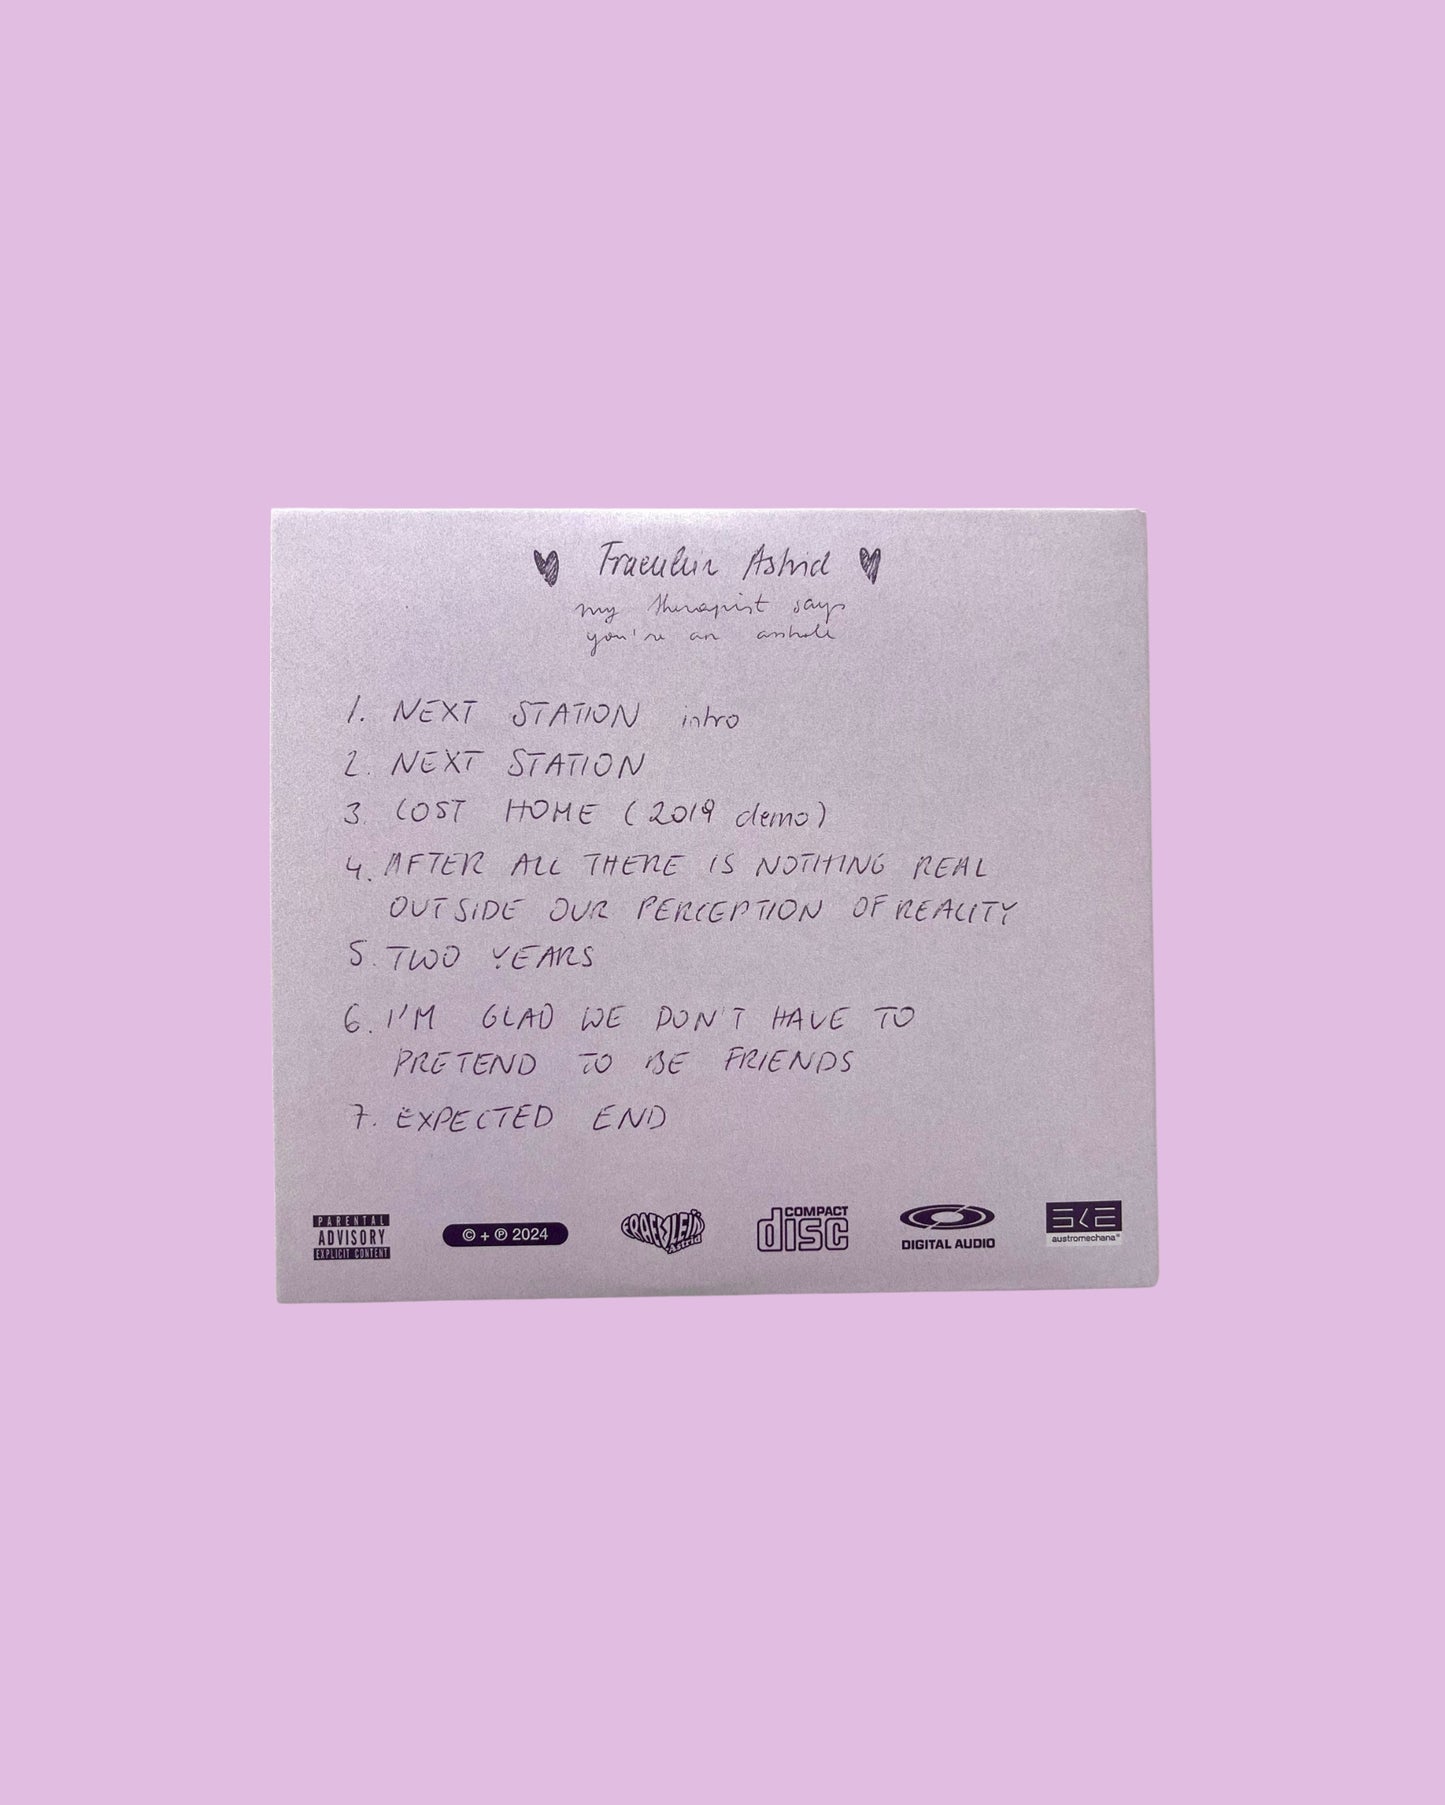 Fraeulein Astrid
my therapist says
you're an asshole
1. NEXT STATION intro
2. NEXT STATION
3. LOST HOME (2019 demo)
4. AFTER ALL THERE IS NOTHING REAL
OUTSIDE OUR PERCEPTION OF REALITY
5. TWO YEARS
6. I'M GLAD WE DON'T HAVE TO
PRETEND TO BE FRIENDS
7. EXPECTED END
PARENTAL
ADVISORY
EXPLICIT CONTENT
© + ℗ 2024
FRAEULEIN
Astrid
COMPACT
disc
DIGITAL AUDIO
SKE
austromechana®